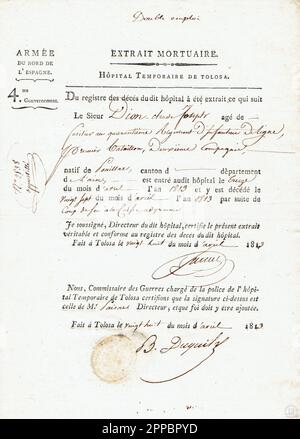 Double employé
ARMÉE
DU NORD DE
L'ESPAGNE.
4.me
Gouvernement.
EXTRAIT MORTUAIRE.
HÔPITAL TEMPORAIRE DE TOLOSA.
Du registre des décès du dit hôpital à été extrait ce qui suit
Le Sieur Dion Joseph agé de
quarantieme Régiment D'infanterie De ligne
Premier Bataillon, Deuxieme Compagnie
natif de canton d département
d est entré audit hôpital le treize
du mois d'avril l'an 1813 et y est décédé le
vingt sept du mois d'avril l'an 1813 par suite de
Coup de feu a la
Je soussigné, Directeur du dit hôpital, certifie le présent extrait
véritable et conforme au registre des décès du dit hôpital.
Fait à Tolosa le vingt huit du mois d'avril 1813
Nous, Commissaire des Guerres chargé de la police de l'hôpital
Temporaire de Tolosa certifions que la signature ci-dessus est
celle de Mr. Directeur, et que foi doit y être ajoutée.
Fait à Tolosa le vingt huit du mois d'avril 1813
B.
alamy
Image ID: 2PPBPYD
www.alamy.com